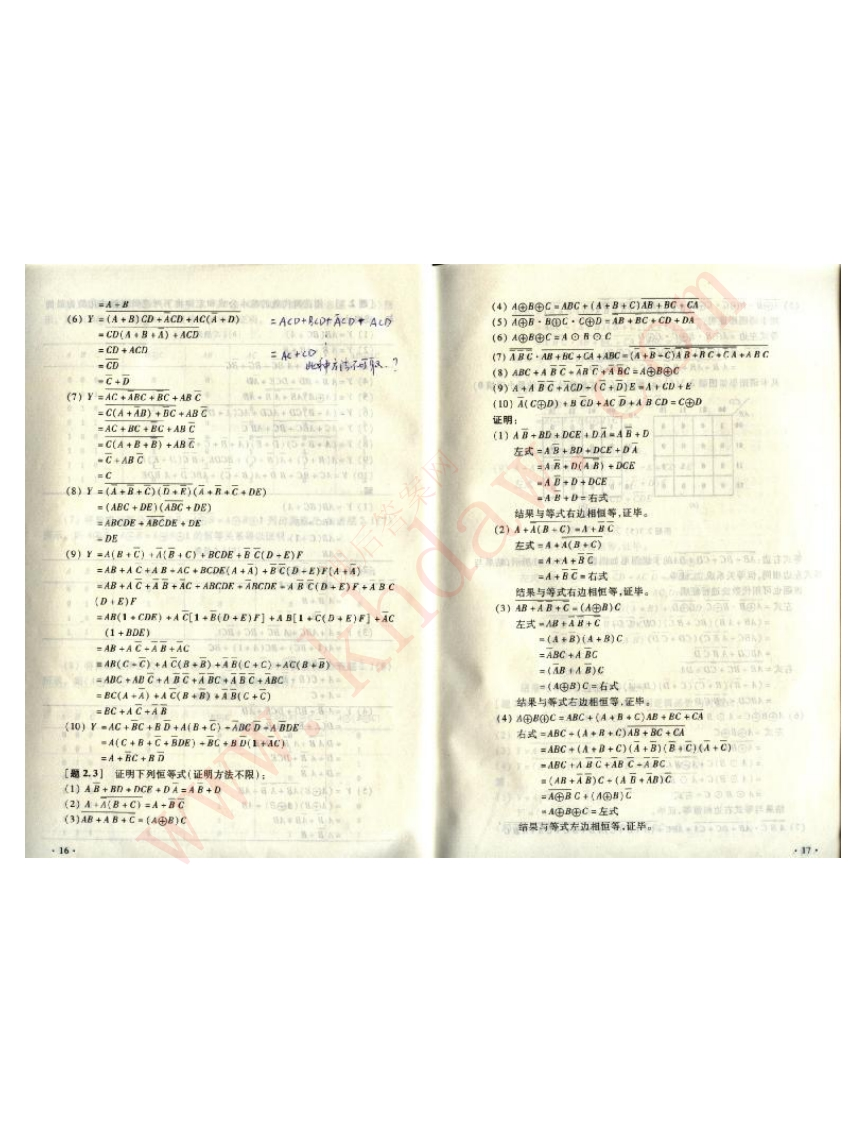 = A + B
(6) Y = (A + B)CD + ACD + AC(A̅ + D)
= CD(A + B + A̅) + ACD
= CD + ACD
= CD
= C̅ + D̅
= ACD + BCD + A̅CD + ACD
= AC + CD
(7) Y = AC + ABC + BC + ABC̅
= C(A + AB) + BC + ABC̅
= AC + BC + BC + ABC̅
= C(A + B + B̅) + ABC̅
= C̅ + ABC̅
= C
(8) Y = (A̅ + B̅ + C̅)(D̅ + E̅)(A̅ + B̅ + C̅ + DE)
= (ABC + DE)(ABC + DE)
= ABCDE + ABCDE + DE
= DE
(9) Y = A(B + C̅) + A̅(B̅ + C) + BCDE + B̅C̅(D + E)F
= AB + AC̅ + A̅B̅ + A̅C + BCDE(A + A̅) + B̅C̅(D + E)F(A + A̅)
= AB + AC̅ + A̅B̅ + A̅C + ABCDE + A̅BCDE + AB̅C̅(D + E)F + A̅B̅C̅
(D + E)F
= AB(1 + CDE) + AC̅[1 + B̅(D + E)F] + A̅B̅[1 + C̅(D + E)F] + A̅C
(1 + BDE)
= AB + AC̅ + A̅B̅ + A̅C
= AB(C + C̅) + AC̅(B + B̅) + A̅B̅(C + C̅) + A̅C(B + B̅)
= ABC + ABC̅ + AB̅C̅ + A̅B̅C + A̅B̅C̅ + A̅BC
= BC(A + A̅) + AC̅(B + B̅) + A̅B̅(C + C̅)
= BC + AC̅ + A̅B̅
(10) Y = AC + B̅C + BD̅ + A(B + C̅) + A̅BCD̅ + AB̅DE
= A(C + B + C̅ + B̅DE) + B̅C + BD̅(1 + A̅C)
= A + B̅C + BD̅
[题 2.3] 证明下列恒等式(证明方法不限):
(1) AB̅ + BD + DCE + DA̅ = AB̅ + D
(2) A + A̅(B + C) = A + B̅C̅
(3) AB + A̅B̅ + C̅ = (A⊕B)C
· 16 ·
(4) A⊕B⊕C = ABC + (A + B + C)AB + BC + CA
(5) A⊕B · B⊕C · C⊕D = AB + BC + CD + DA
(6) A⊕B⊕C = A⊙B⊙C
(7) A̅B̅C̅ · AB + BC + CA + ABC = (A + B + C)A̅B̅ + B̅C̅ + C̅A̅ + A̅B̅C̅
(8) ABC + AB̅C̅ + A̅BC̅ + A̅B̅C = A⊕B⊕C
(9) A + AB̅C̅ + A̅CD + (C̅ + D̅)E = A + CD + E
(10) A̅(C⊕D) + BC̅D + ACD̅ + AB̅C̅D = C⊕D
证明:
(1) AB̅ + BD + DCE + DA̅ = AB̅ + D
左式 = AB̅ + BD + DCE + DA̅
= AB̅ + D(AB̅) + DCE
= AB̅ + D + DCE
= AB̅ + D = 右式
结果与等式右边相恒等,证毕。
(2) A + A̅(B + C) = A + B̅C̅
左式 = A + A̅(B + C)
= A + A + B̅C̅
= A + B̅C̅ = 右式
结果与等式右边相恒等,证毕。
(3) AB + A̅B̅ + C̅ = (A⊕B)C
左式 = AB + A̅B̅ + C̅
= (A̅ + B̅)(A + B)C
= A̅BC + AB̅C
= (A̅B + AB̅)C
= (A⊕B)C = 右式
结果与等式右边相恒等,证毕。
(4) A⊕B⊕C = ABC + (A + B + C)AB + BC + CA
右式 = ABC + (A + B + C)AB + BC + CA
= ABC + (A + B + C)(A̅ + B̅)(B̅ + C̅)(A̅ + C̅)
= ABC + AB̅C̅ + A̅BC̅ + A̅B̅C
= (AB + A̅B̅)C + (AB̅ + A̅B)C̅
= A⊕BC + (A⊕B)C̅
= A⊕B⊕C = 左式
结果与等式左边相恒等,证毕。
· 17 ·